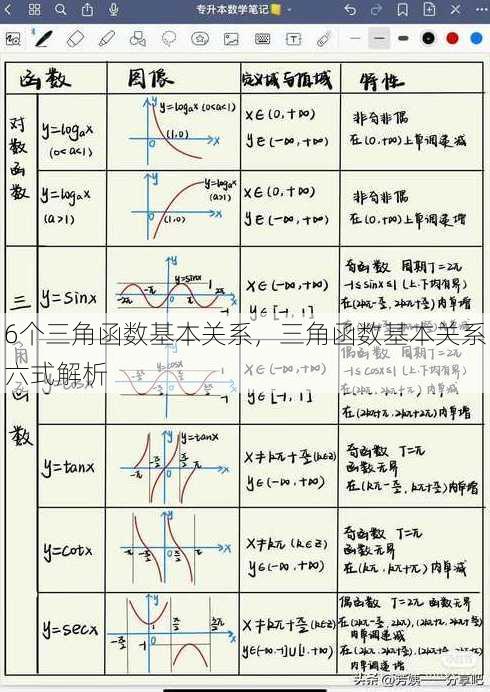 专升本数学笔记
函数 图像 定义域与值域 特性
对数函数
y=logₐx
(0<a<1)
y=logₐx (0<a<1)
(1,0)
x∈(0,+∞)
y∈(-∞,+∞)
非奇非偶
在(0,+∞)上单调递减
y=logₐx
(a>1)
y=logₐx
(a>1)
(1,0)
x∈(0,+∞)
y∈(-∞,+∞)
非奇非偶
在(0,+∞)上单调递增
三角函数
y=sinx
y=sinx
x∈(-∞,+∞)
y∈[-1,1]
奇函数 周期T=2π
-1≤sinx≤1(上.下均有界)
6个三角函数基本关系，三角函数基本关系
六式解析
y=cosx
x∈(-∞,+∞)
y∈[-1,1]
偶函数 周期T=2π
-1≤cosx≤1(上.下均有界)
在(2kπ+π,2kπ+2π)内单增
y=tanx
y=tanx
x≠kπ+π/2(k∈Z)
y∈(-∞,+∞)
奇函数 T=π
函数无界
在(kπ-π/2,kπ+π/2)内单增
y=cotx
x≠kπ(k∈Z)
y∈(-∞,+∞)
奇函数 T=π
函数无界
在(kπ,kπ+π)内单减
y=secx
x≠kπ+π/2(k∈Z)
y∈(-∞,-1]∪[1,+∞)
偶函数 T=2π 函数无界
内单调递减
内单调递增
头条